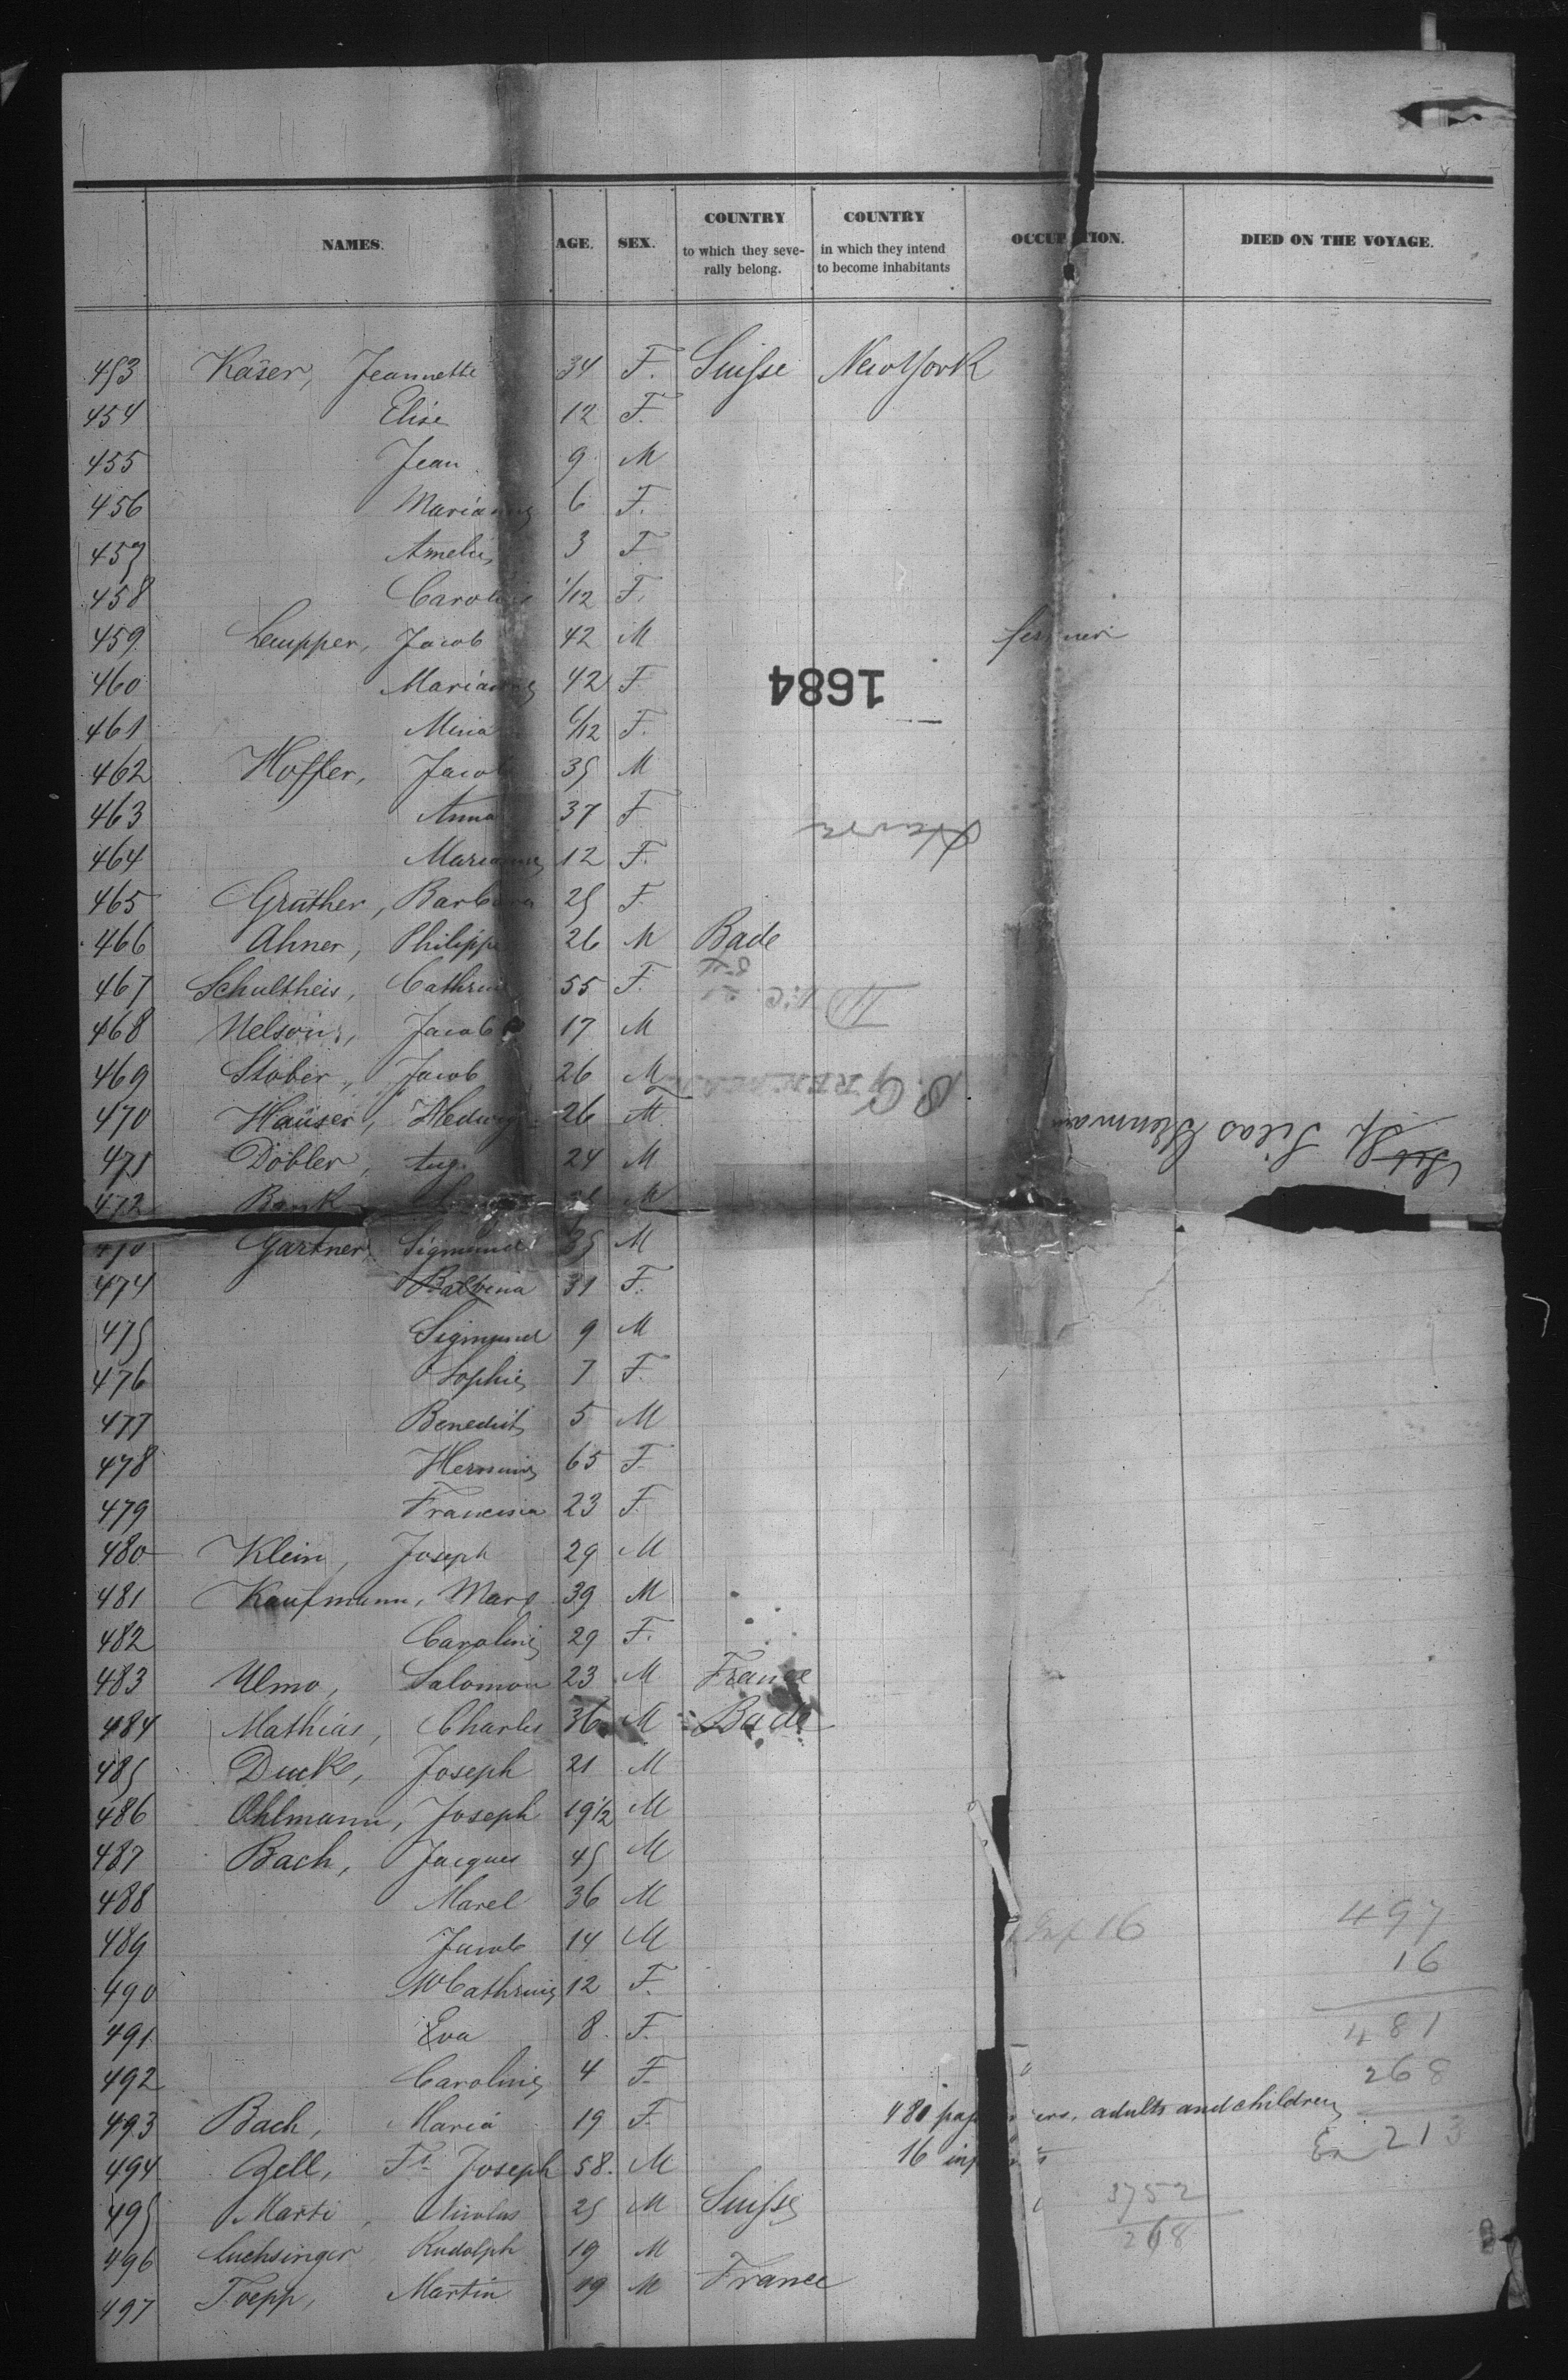 NAMES. AGE. SEX. COUNTRY to which they severally belong. COUNTRY in which they intend to become inhabitants OCCUPATION. DIED ON THE VOYAGE.
453 Käser, Jeannette 34 F. Suisse New York
454 Elise 12 F.
455 Jean 9 M
456 Marianne 6 F.
457 Amelie 3 F
458 Caroline 1/12 F.
459 Leupper, Jacob 42 M
460 Marianne 42 F
461 Mina 6/12 F.
1684
462 Hoffer, Jacob 35 M
463 Anna 37 F
Havre
464 Marianne 12 F.
465 Grüther, Barbara 25 F.
466 Ahner, Philippe 26 M Bade
467 Schultheis, Cathrine 55 F.
468 Nelson, Jacob 17 M
469 Stöber, Jacob 26 M
S. GREENMAN
470 Haüser, Hedwig 26 M
Sh Silas Greenman
471 Döbler, Aug. 24 M
472 M
Gartner, Sigmund 35 M
474 Balbina 31 F.
475 Sigmund 9 M
476 Sophie 7 F.
477 Benedict 5 M
478 Hermine 65 F
479 23 F
480 Klein, Joseph 29 M
481 Kaufmann, Marx 39 M
482 Caroline 29 F.
483 Ulmo, Salomon 23 M France
484 Mathias, Charles 36 M Bade
485 Duck, Joseph 21 M
486 Ohlmann, Joseph 19 1/2 M
487 Bach, Jacques 45 M
488 Marel 36 M
489 Jacob 14 M
490 Cathrine 12 F.
491 Eva 8. F.
492 Caroline 4 F
493 Bach, Maria 19 F.
494 Zell, Fr. Joseph 58. M
495 Marti, Nicolas 25 M Suisse
496 Luchsinger Rudolph 19 M
497 Toepp, Martin 19 M France
Inf 16
497
16
481
268
213
481 passengers, adults and children
16 infants
3752
268